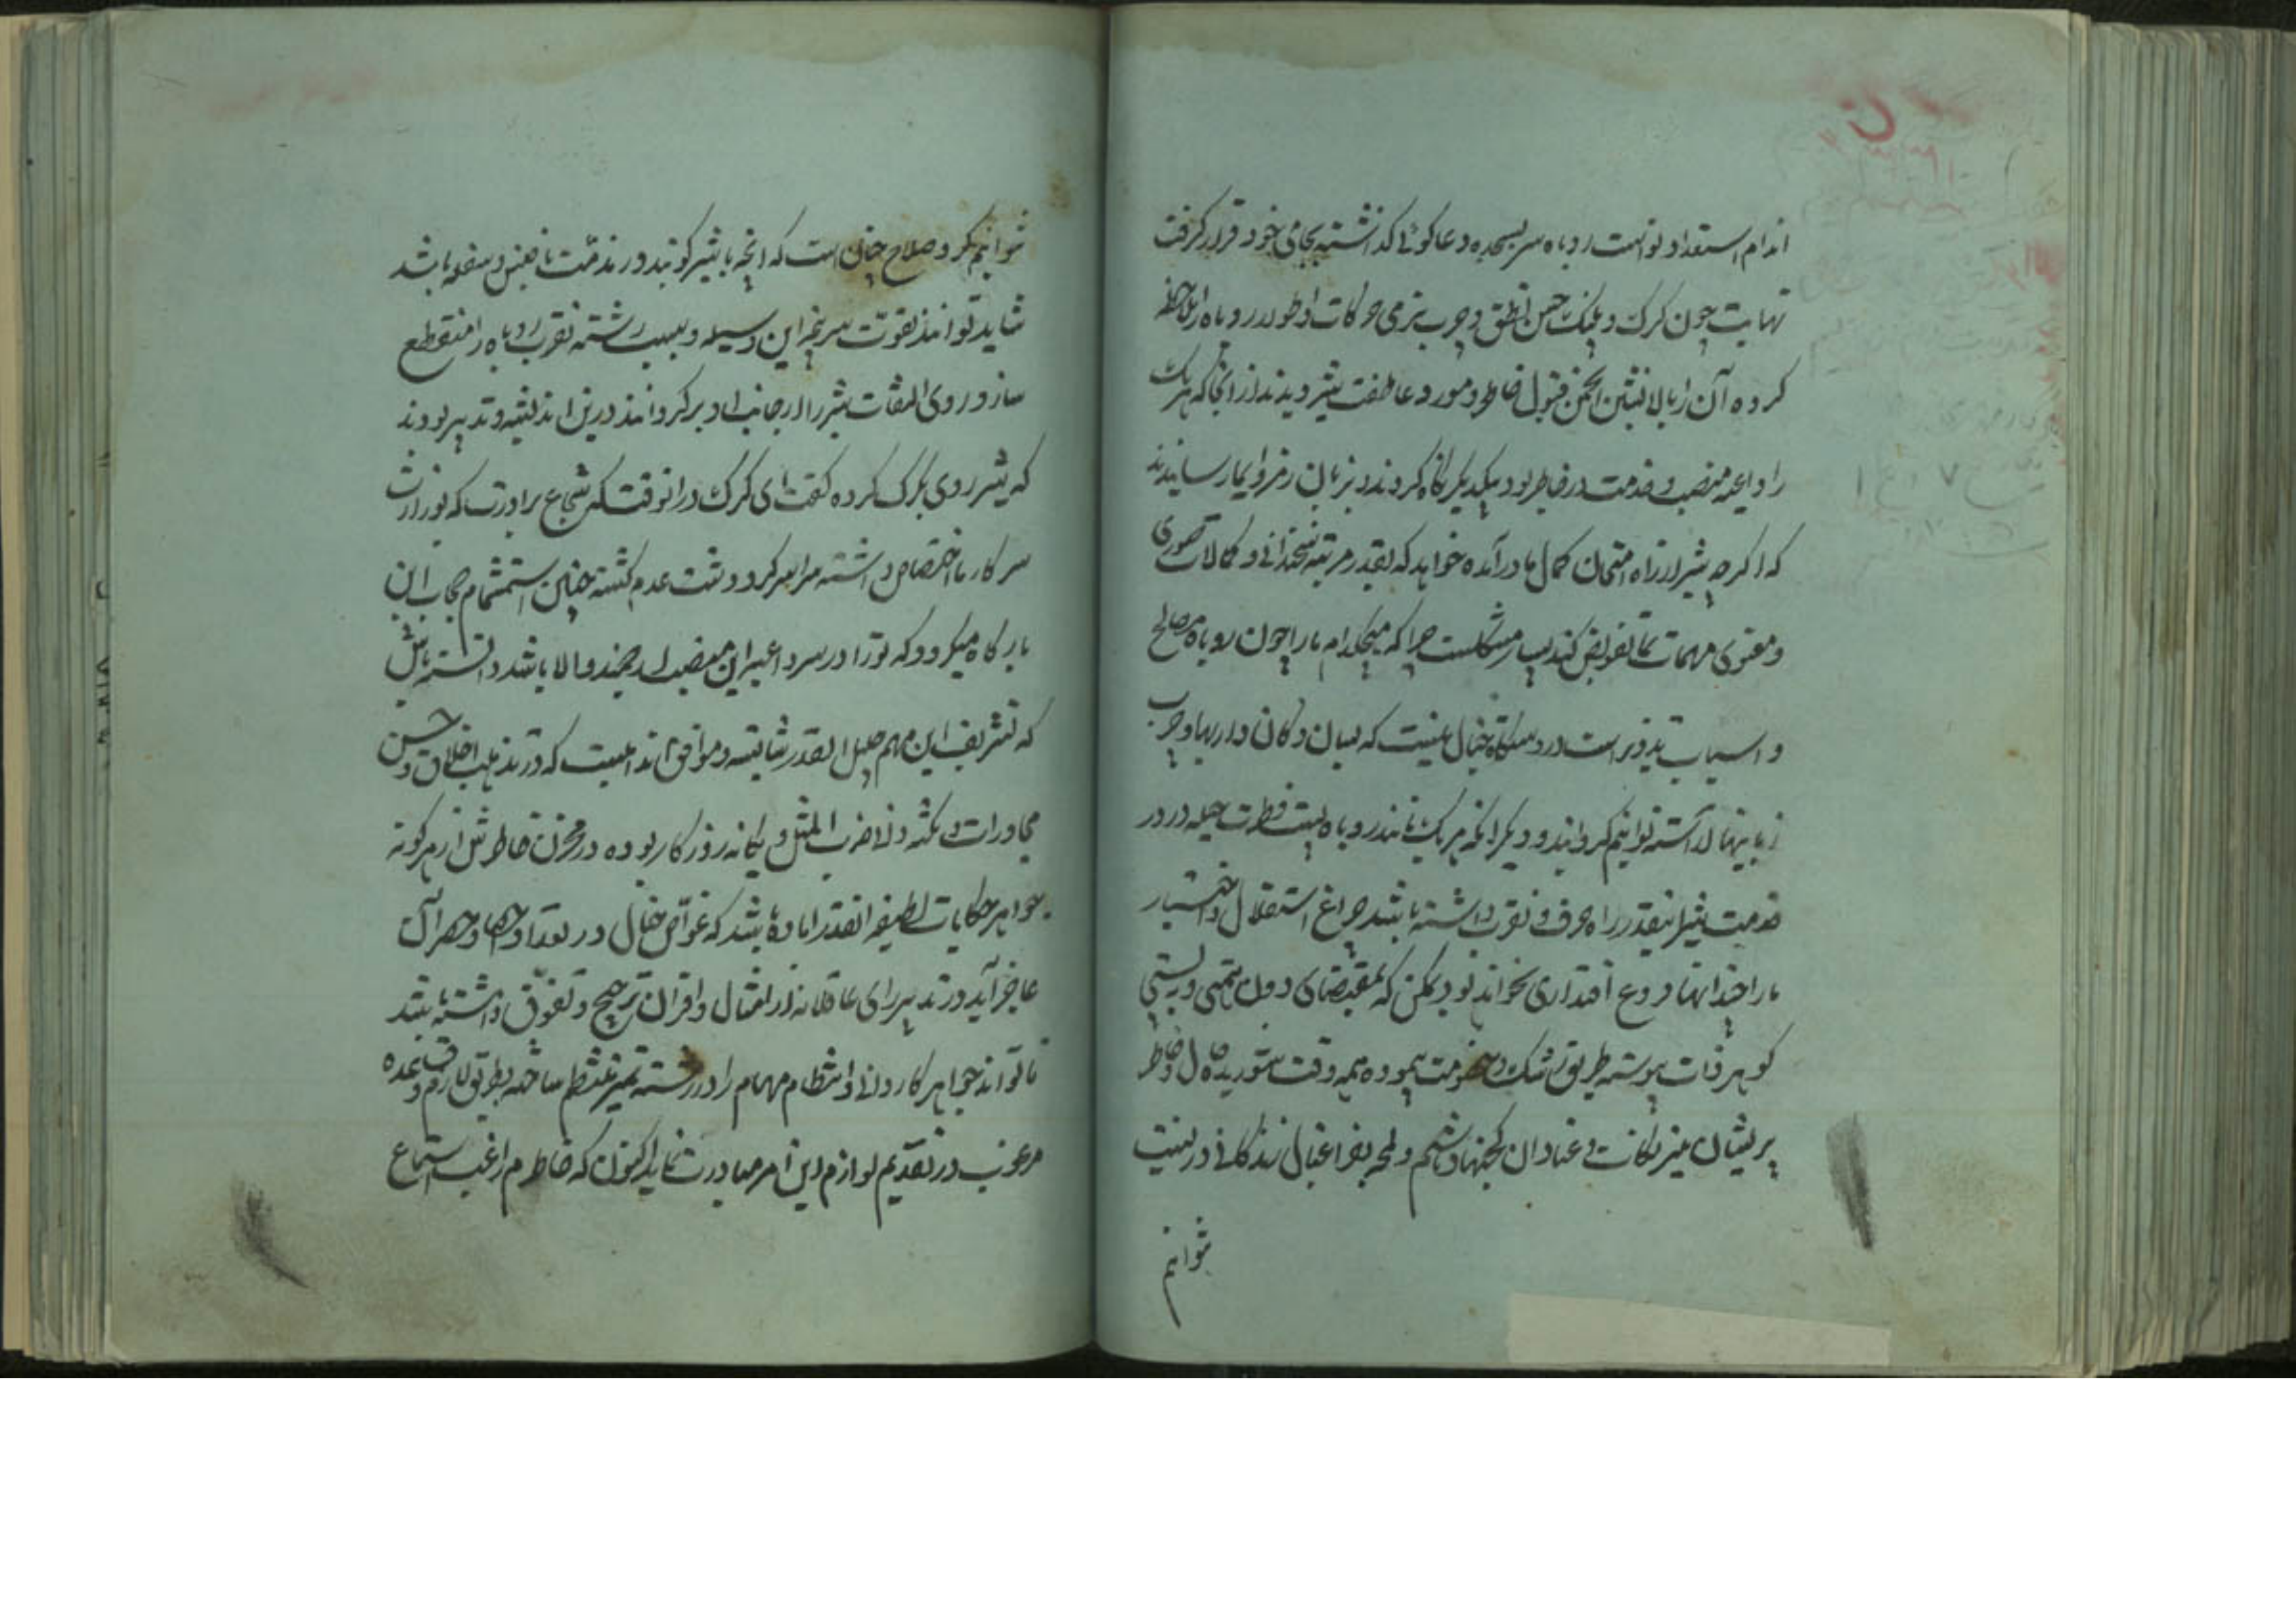 اندام استعداد توانست روباه سر بسجده دعاکوئی کذاشته بجای خود قرار کرفت
نهایت چون کرک و پلنک حسن نطق و چرب نرمی حرکات و اطوار روباه را ملاحظه
کرده آن را بالانشین انجمن قبول خاطر و مورد عاطفت شیر دیدند از آنجا که هر یک
را داعیه منصب و خدمت در خاطر بود بیکدیکر نکاه کردند و بزبان رمز و ایما رسانیدند
که اکرچه شیر از راه امتحان کمال ما درآمده خواهد که بقدر مرتبه سخندانی و کمالات صوری
و معنوی مهمات بما تفویض کند بسیار مشکلست چرا که هیچکدام ما را چون روباه مصالح
و اسباب تزویر است در دستکاه خیال نیست که بسان دکان داریها و چرب
زبانیها آراسته توانیم کردانید و دیکر آنکه هر یک مانند روباه پست فطرت حیله در در
خدمت شیر اینقدر راه حرف و تقرب داشته باشد چراغ استقلال و اختیار
ما را چندانها فروغ اقتداری نخواهد بود و ممکن که بمقتضای دون همتی و پستی
کوهر ذات پیوسته طریق رشک و خصومت پیموده همه وقت شوریده حال و خاطر
پریشان میزیکانت و عناد آن کجنهاد باشیم و لمحه بفراغبال زندکانی در بیشه
نتوانیم
نتوانیم کرد صلاح چنان است که آنچه با شیر کویند در مذمت ناقص و سفله باشد
شاید توانند بقوت سرپنجه این وسیله و سبب رشته تقرب روباه را منقطع
سازد و روی التفات شیر را از جانب او برکردانند درین اندیشه و تدبیر بودند
که شیر روی بکرک کرده کفت ای کرک در آنوقت که شجاع برادرت که بوزارت
سرکار ما اختصاص داشته مراسر کرد دشت عدم کشته چنین استشمام حجاب این
بارکاه میکردد که تورا در سر داعیه این منصب ارجمند و الا باشد دانسته باش
که تشریف این مهم جلیل القدر شایسته و موافق اندامیست که در تهذیب اخلاق و حسن
محاورات و نکته دانی ضرب المثل و یکانه روزکار بوده در مخزن خاطرش از هر کونه
جواهر حکایات لطیفه آنقدر آماده باشد که غواص خیال در تعداد و احصا و حصر آن
عاجز آید و در تدبیر رای عاقلانه از امثال و اقران ترجیح و تفوق داشته باشد
تا تواند جواهر کاردانی و انتظام مهمام را در رشته تمیز منتظم ساخته بطریق لازم و قاعده
مرغوب در تقدیم لوازم این امر مبادرت نماید اکنون که خاطرم راغب استماع